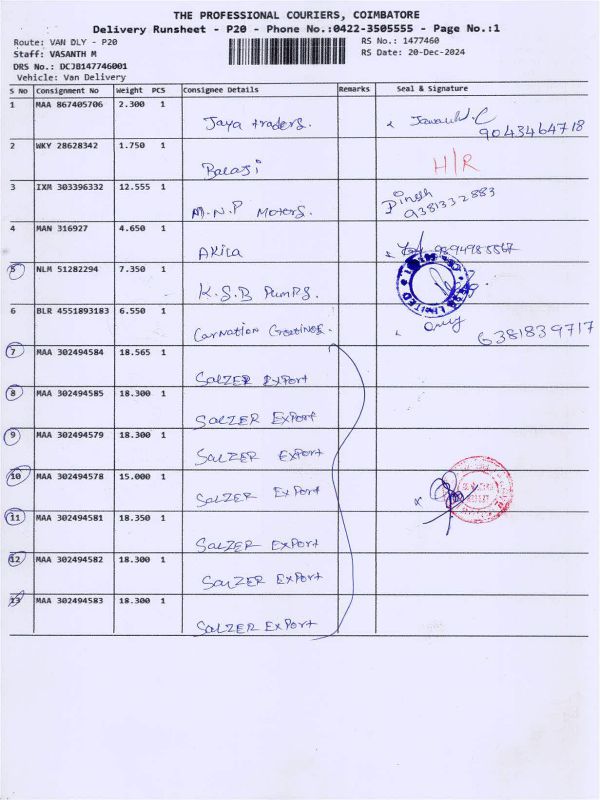 THE PROFESSIONAL COURIERS, COIMBATORE
Delivery Runsheet - P20 - Phone No.:0422-3505555 - Page No.:1
Route: VAN DLY - P20 RS No.: 1477460
Staff: VASANTH M RS Date: 20-Dec-2024
DRS No.: DCJB147746001
Vehicle: Van Delivery
S No Consignment No Weight PCS Consignee Details Remarks Seal & Signature
1 MAA 867405706 2.300 1
Jaya traders. 9043464718
2 WKY 28628342 1.750 1
Balaji H/R
3 IXM 303396332 12.555 1
M.N.P Motors. Dinesh 9381332883
4 MAN 316927 4.650 1
Akila
5 NLM 51282294 7.350 1
K.S.B Pumps.
6 BLR 4551893183 6.550 1
Carnation Greetings. 6381839717
7 MAA 302494584 18.565 1
SALZER Export
8 MAA 302494585 18.300 1
SALZER Export
9 MAA 302494579 18.300 1
SALZER Export
10 MAA 302494578 15.000 1
SALZER Export
11 MAA 302494581 18.350 1
SALZER Export
12 MAA 302494582 18.300 1
SALZER Export
13 MAA 302494583 18.300 1
SALZER Export